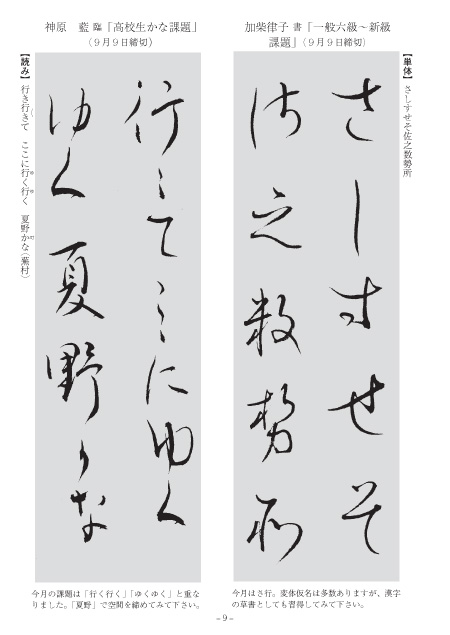 加柴律子 書「一般六級～新級
課題」（９月９日締切）
【単体】 さしすせそ佐之数勢所
さしすせそ
佐之数勢所
今月はさ行。変体仮名は多数ありますが、漢字
の草書としても習得してみて下さい。
神原　藍 臨「高校生かな課題」
（９月９日締切）
行きてここにゆく
ゆく夏野かな
【読み】 行き行きて　ここに行く行く　夏野かな（蕪村）
今月の課題は「行く行く」「ゆくゆく」と重な
りました。「夏野」で空間を締めてみて下さい。
－9－